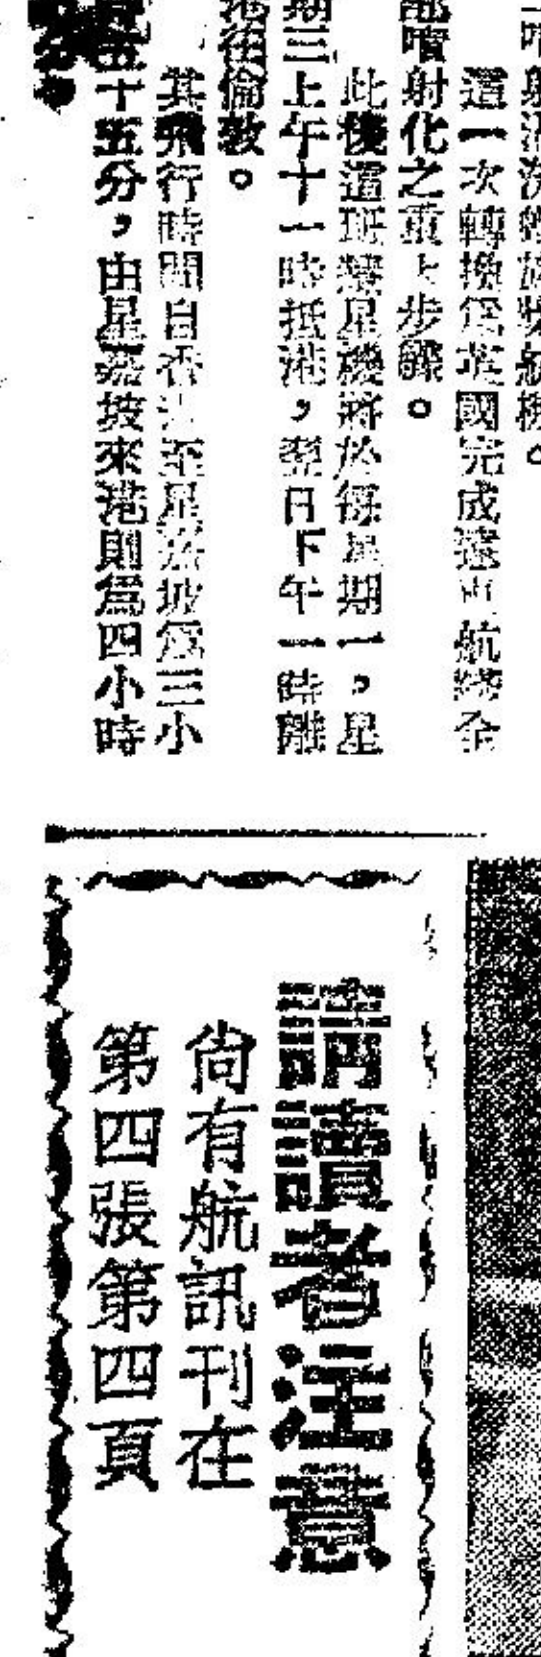 這一次轉換為英國完成遠東航綫全
部噴射化之重大步驟。
此後這班彗星機將於每星期一,星
期三上午十一時抵港,翌日下午一時離
港往倫敦。
其飛行時間自香港至星嘉坡為三小
時五十五分,由星嘉坡來港則為四小時
請讀者注意
尚有航訊刊在
第四張第四頁